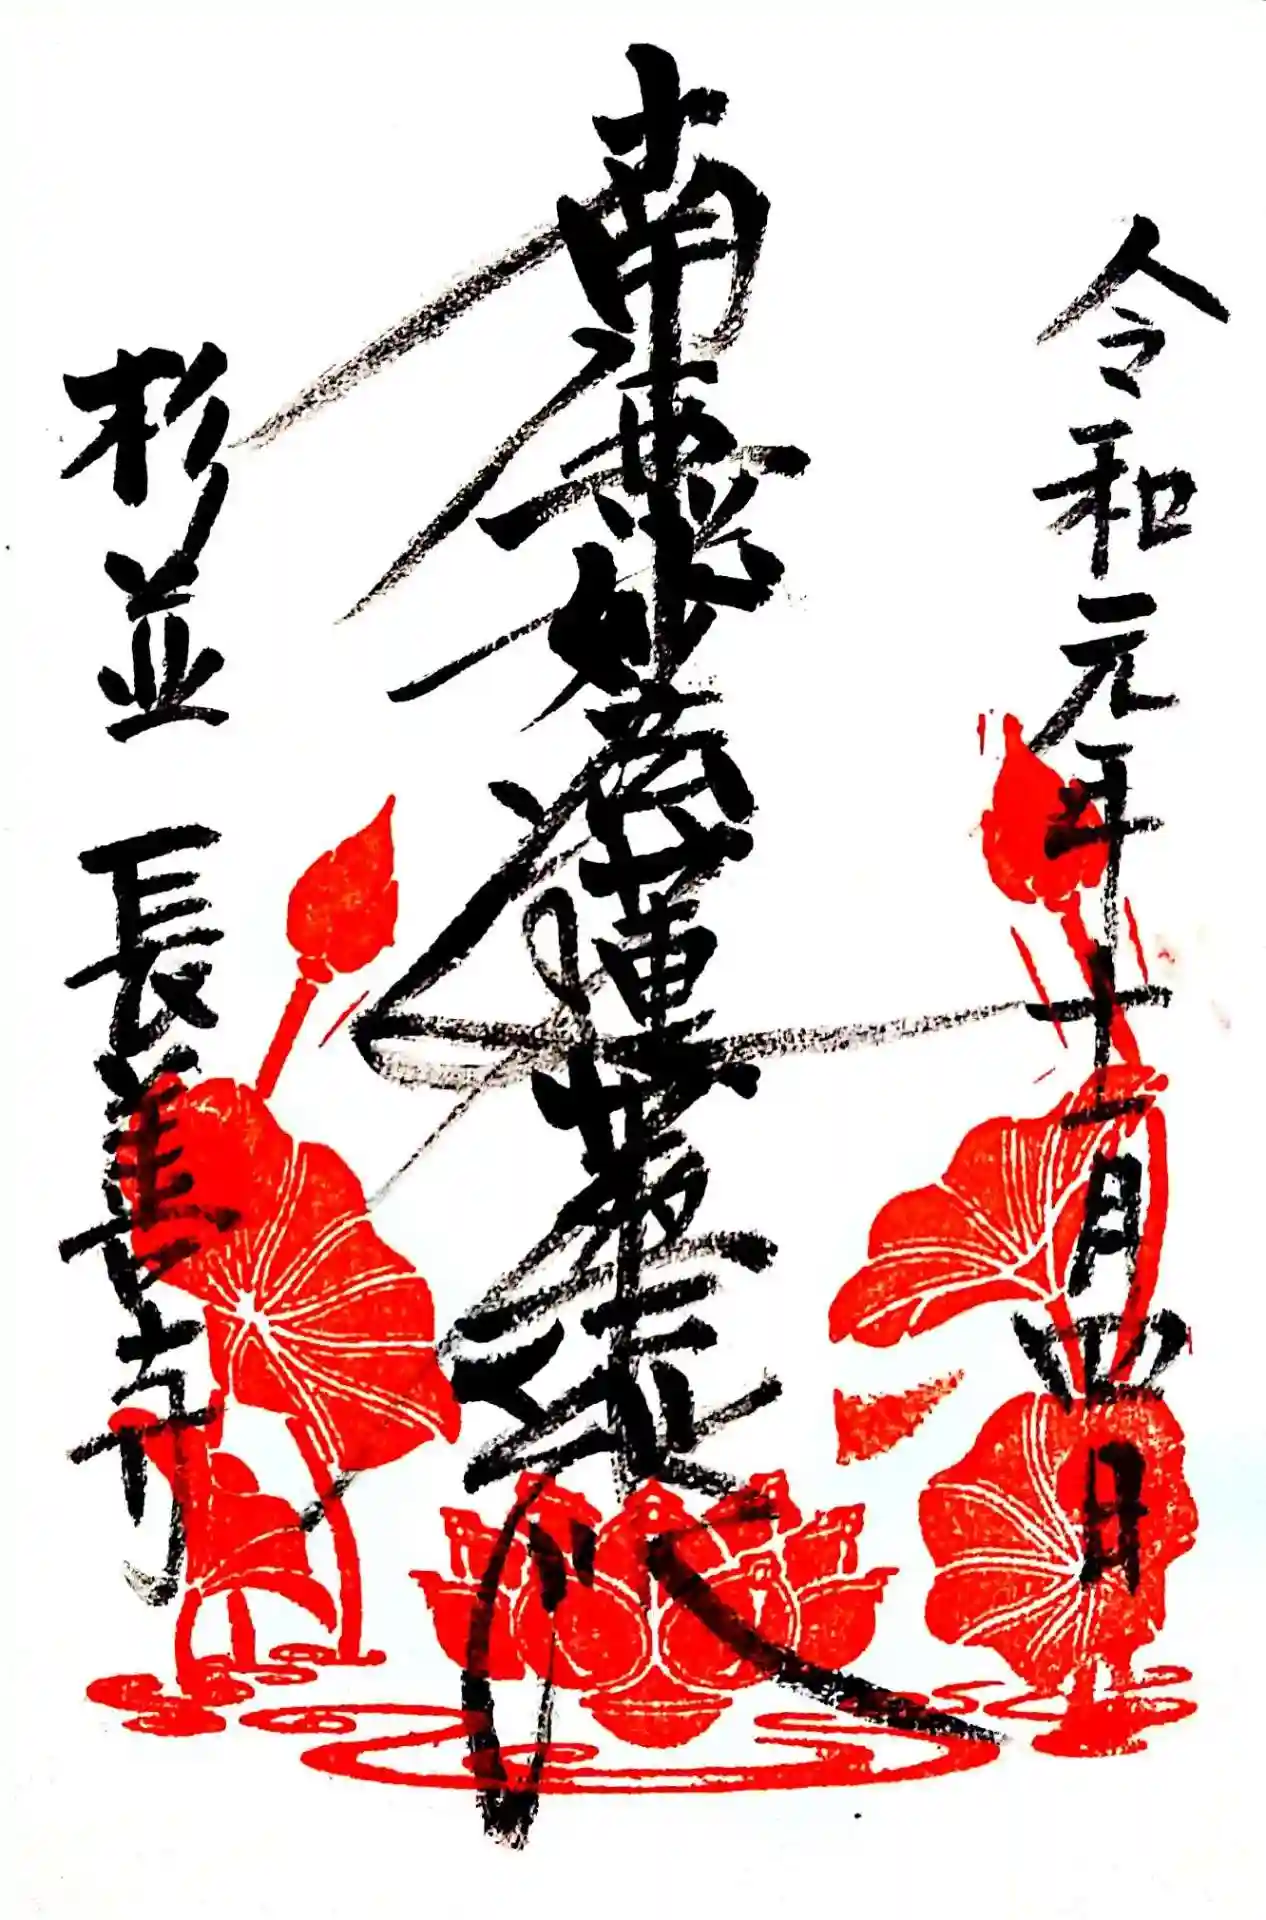 令和元年十一月四日
南無妙法蓮華経
杉並 長善寺